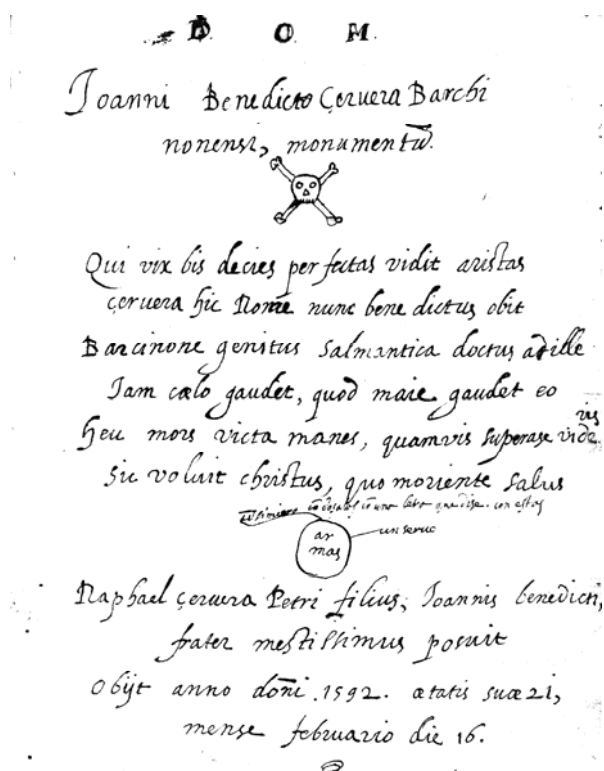 D. O. M.
Joanni Benedicto Çervera Barchi
nonensi, monumentũ.
Qui vix bis decies perfectas vidit aristas
çervera hic Romæ nunc benedictus obit
Barcinone genitus Salmantica doctus at ille
Jam cælo gaudet, quod maie gaudet eo
heu mors victa manes, quamvis superase videris
Sic voluit christus, quo moriente salus
cõ una letra que dise. con estas
un serue
ar
mas
Raphael çervera Petri filius, Joannis benedicti,
frater mestissimus posuit
Obijt anno dom̃i .1592. ætatis suæ 21,
mense februario die 16.